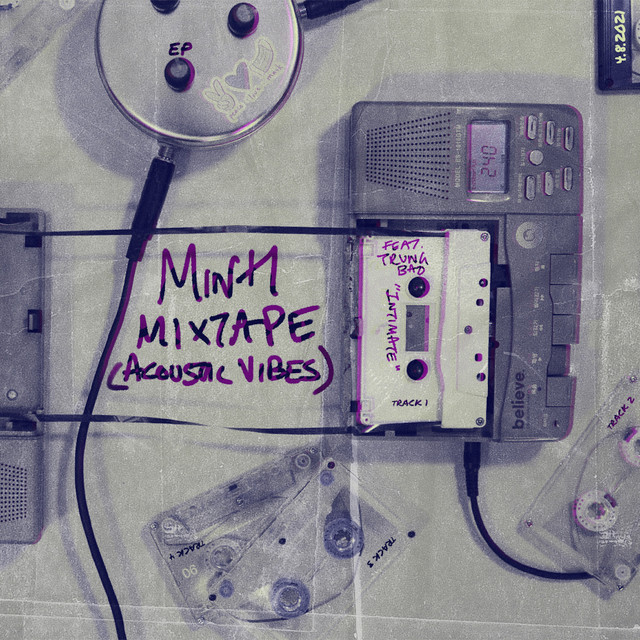 EP
4.8.2021
042
MINH
MIXTAPE
(ACOUSTIC VIBES)
FEAT.
TRUNG
BAO
"INTIMATE"
TRACK 1
believe.
TRACK 2
TRACK 4
90
TRACK 3